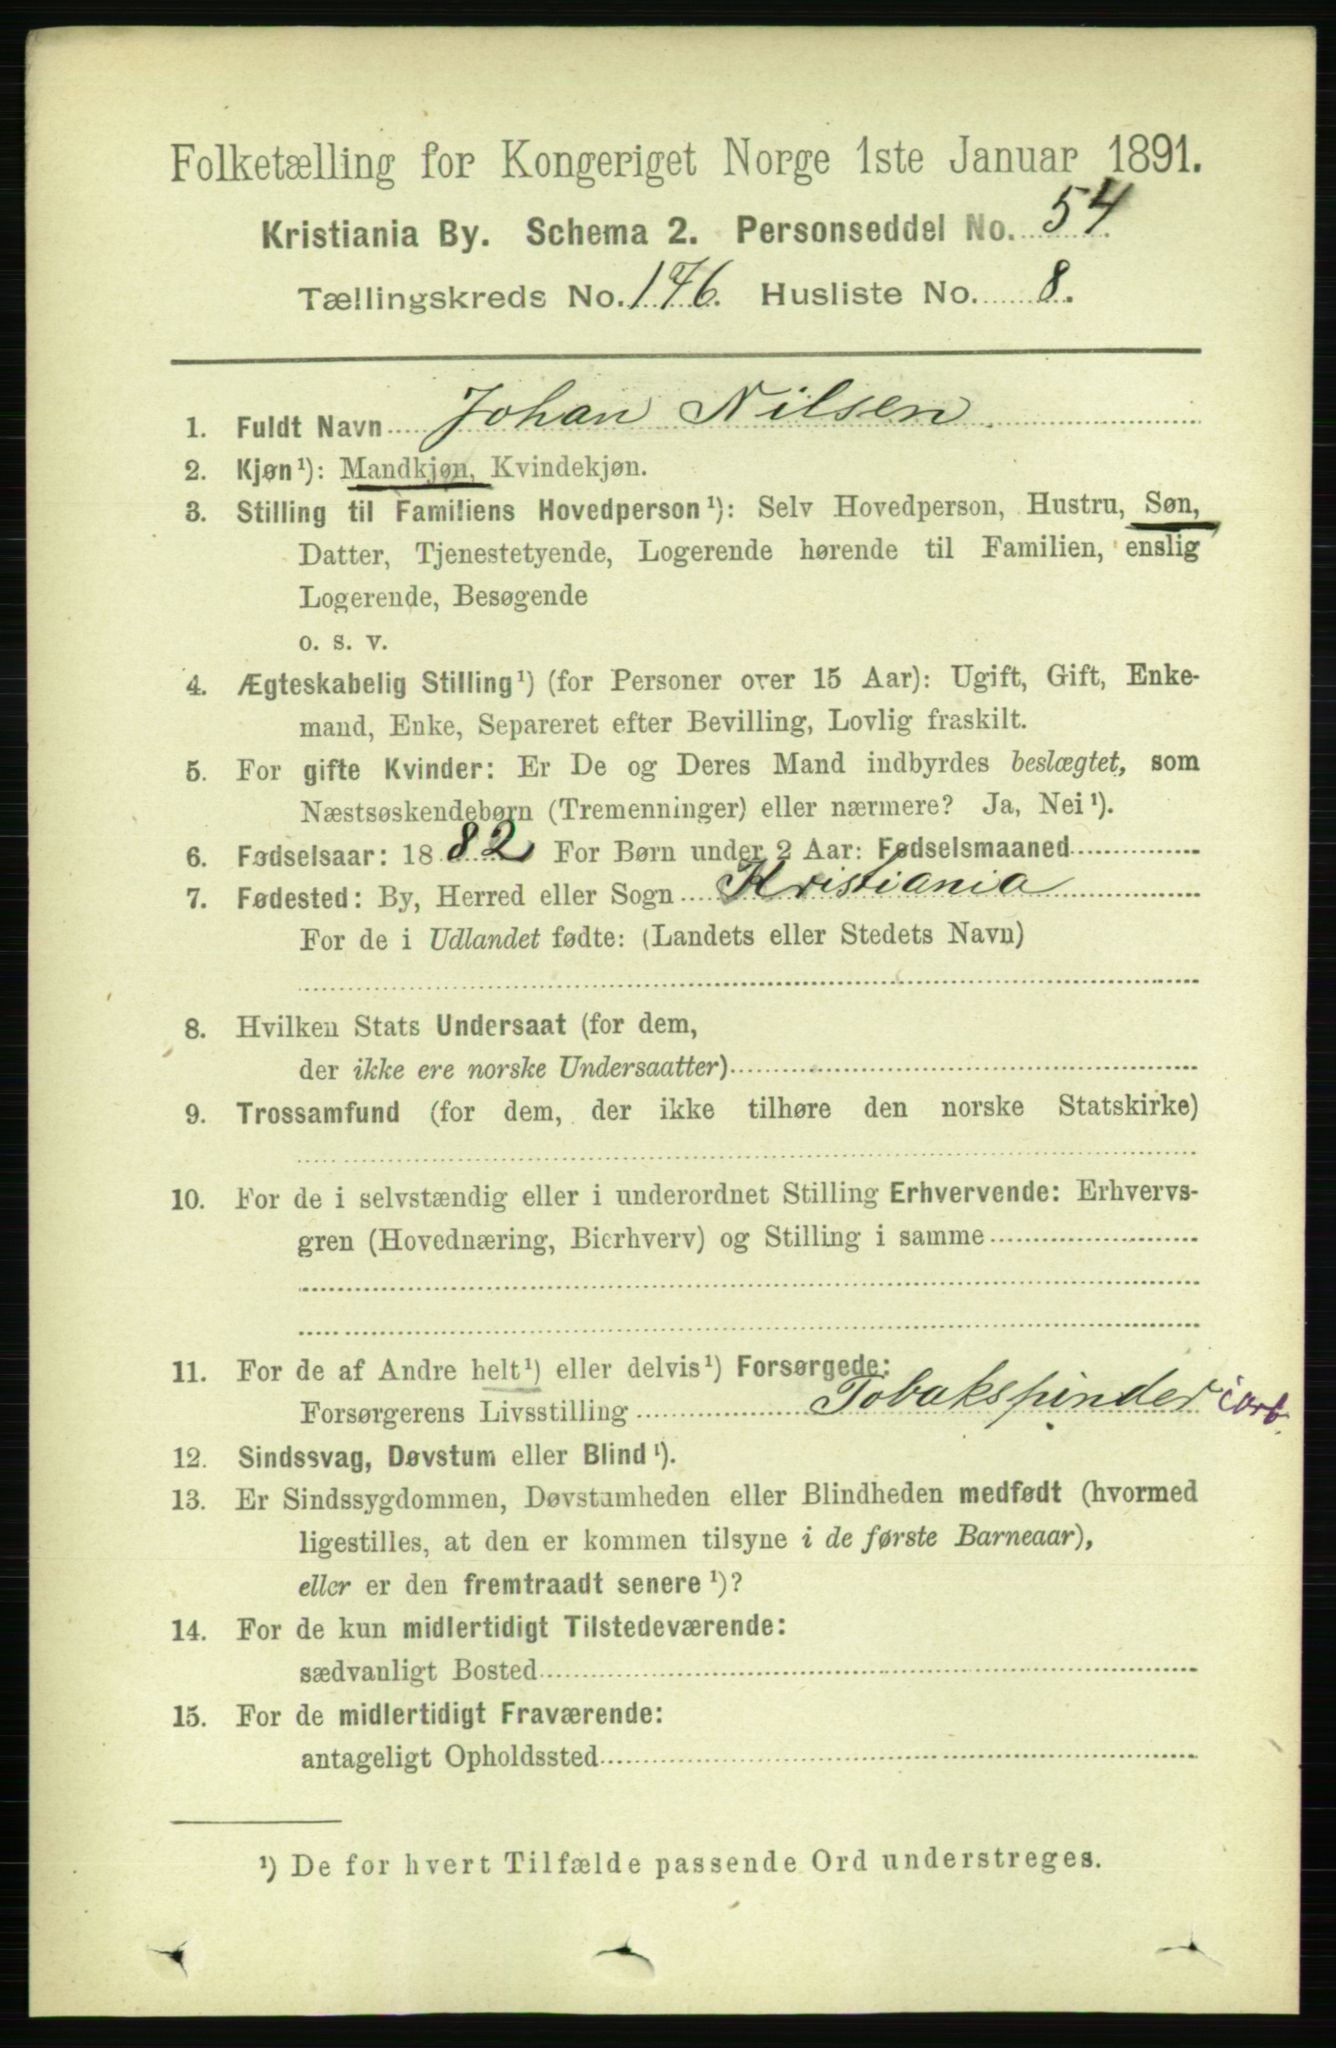 Folketælling for Kongeriget Norge 1ste Januar 1891.
Kristiania By. Schema 2. Personseddel No. 54.
Tællingskreds No. 176. Husliste No. 8.
1. Fuldt Navn Johan Nilsen
2. Kjøn¹): Mandkjøn, Kvindekjøn.
3. Stilling til Familiens Hovedperson¹): Selv Hovedperson, Hustru, Søn,
Datter, Tjenestetyende, Logerende hørende til Familien, enslig
Logerende, Besøgende
o. s. v.
4. Ægteskabelig Stilling¹) (for Personer over 15 Aar): Ugift, Gift, Enke-
mand, Enke, Separeret efter Bevilling, Lovlig fraskilt.
5. For gifte Kvinder: Er De og Deres Mand indbyrdes beslægtet, som
Næstsøskendebørn (Tremenninger) eller nærmere? Ja, Nei¹).
6. Fødselsaar: 1882 For Børn under 2 Aar: Fødselsmaaned
7. Fødested: By, Herred eller Sogn Kristiania
For de i Udlandet fødte: (Landets eller Stedets Navn)
8. Hvilken Stats Undersaat (for dem,
der ikke ere norske Undersaatter)
9. Trossamfund (for dem, der ikke tilhøre den norske Statskirke)
10. For de i selvstændig eller i underordnet Stilling Erhvervende: Erhvervs-
gren (Hovednæring, Bierhverv) og Stilling i samme
11. For de af Andre helt¹) eller delvis¹) Forsørgede:
Forsørgerens Livsstilling Tobakspinder i arb.
12. Sindssvag, Døvstum eller Blind¹).
13. Er Sindssygdommen, Døvstumheden eller Blindheden medfødt (hvormed
ligestilles, at den er kommen tilsyne i de første Barneaar),
eller er den fremtraadt senere¹)?
14. For de kun midlertidigt Tilstedeværende:
sædvanligt Bosted
15. For de midlertidigt Fraværende:
antageligt Opholdssted
¹) De for hvert Tilfælde passende Ord understreges.